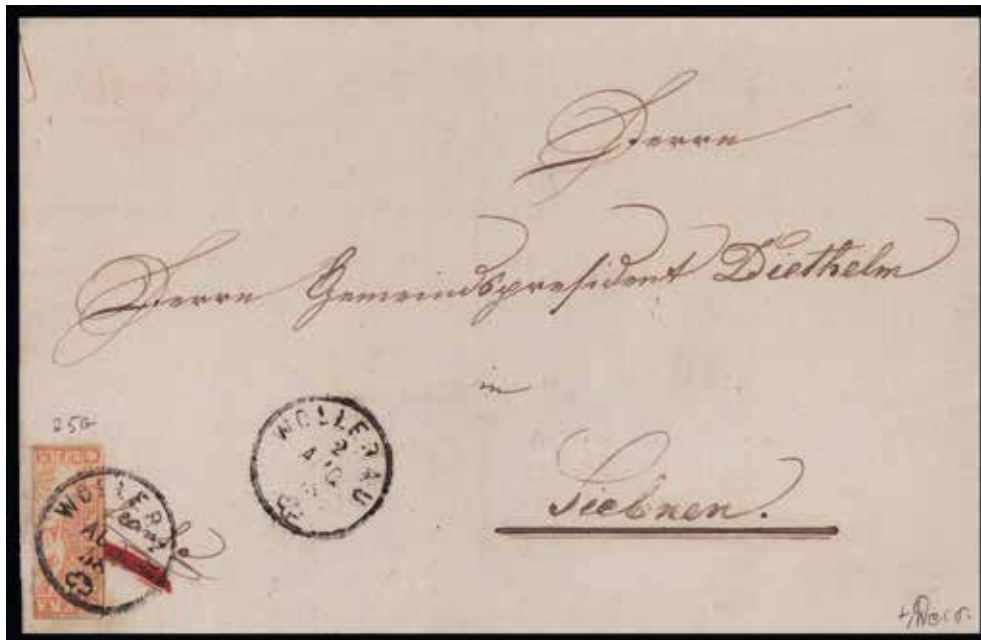 Herrn
Herrn Gemeindspresident Diethelm
in
Siebnen.
25G
WOLLERAU
2
AUG
WOLLER
AU